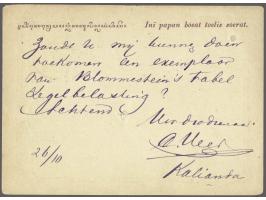 Ini papan boeat toelis soerat.
Zoudt U mij kunnen doen
toekomen een exemplaar
van Blommestein's Tabel
Zegelbelasting?
Achtend
Uw dw dienaar
26/10
Kalianda